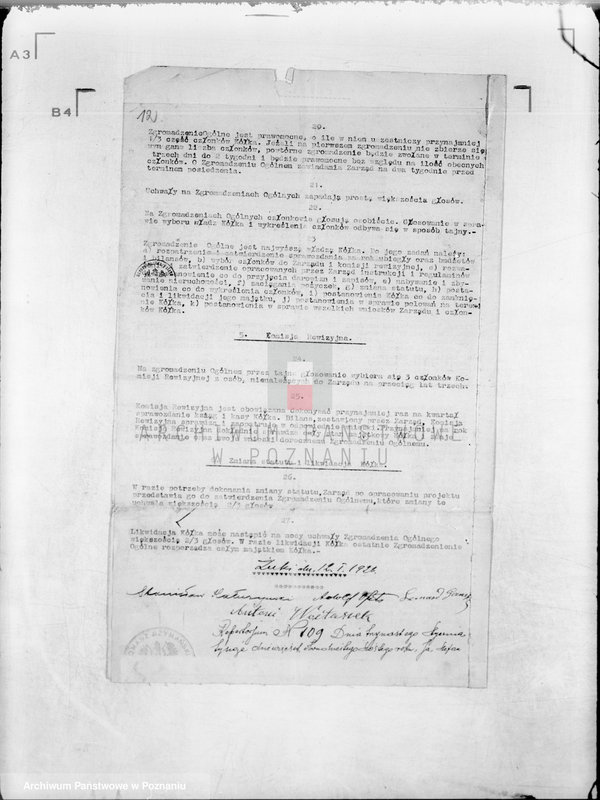 A3
B4
12).
20.
Zgromadzenie Ogólne jest prawomocne, o ile w niem uczestniczy przynajmniej
1/3 część członków Kółka. Jeżeli na pierwszem zgromadzeniu nie zbierze się
wymagana liczba członków, powtórne zgromadzenie będzie zwołane w terminie
trzech dni do 2 tygodni i będzie prawomocne bez względu na ilość obecnych
członków. O Zgromadzeniu Ogólnem zawiadamia Zarząd na dwa tygodnie przed
terminem posiedzenia.
21.
Uchwały na Zgromadzeniach Ogólnych zapadają prostą większością głosów.
22.
Na Zgromadzeniach Ogólnych członkowie głosują osobiście. Głosowanie w spra-
wie wyboru władz Kółka i wykreślenia członków odbywa się w sposób tajny.-
23
Zgromadzenie Ogólne jest najwyższą władzą Kółka. Do jego zadań należy:
a) rozpatrzenie i zatwierdzenie sprawozdania za rok ubiegły oraz budżetów
i bilansów, b) wybór członków do Zarządu i komisji rewizyjnej, c) rozwa-
zatwierdzenie opracowanych przez Zarząd instrukcji i regulaminów
postanowienie co do przyjęcia darowizn i zapisów, e) nabywanie i zby-
wanie nieruchomości, f) zaciąganie pożyczek, g) zmiana statutu, h) posta-
nowienia co do wykreślenia członków, i) postanowienia Kółka co do zamknię-
cia i likwidacji jego majątku, j) postanowienia w sprawie polowań na tere-
nie Kółka, k) postanowienia w sprawie wszelkich wniosków Zarządu i człon-
ków Kółka.
5. Komisja Rewizyjna.
24.
Na zgromadzeniu Ogólnem przez tajne głosowanie wybiera się 3 członków Ko-
misji Rewizyjnej z osób, nienależących do Zarządu na przeciąg lat trzech.
25.
Komisja Rewizyjna jest obowiązana dokonywać przynajmniej raz na kwartał
sprawdzenie ksiąg i kasy Kółka. Bilans, zestawiony przez Zarząd, Komisja
Rewizyjna sprawdza i zaopatruje w odpowiednie wnioski. Przynajmniej na rok
Komisja Rewizyjna sprawdza cały stan majątkowy Kółka i zdaje
sprawozdanie oraz swoje wnioski dorocznemu Zgromadzeniu Ogólnemu.
ARCHIWUM PAŃSTWOWE
W POZNANIU
Zmiana statutu i likwidacja Kółka.
26.
W razie potrzeby dokonania zmiany statutu, Zarząd po opracowaniu projektu
przedstawia go do zatwierdzenia Zgromadzeniu Ogólnemu, które zmiany te
uchwala większością 2/3 głosów
27.
Likwidacja Kółka może nastąpić na mocy uchwały Zgromadzenia Ogólnego
większością 2/3 głosów. W razie likwidacji Kółka ostatnie Zgromadzenienie
Ogólne rozporządza całym majątkiem Kółka.-
dn. 12.I.1921
Stanisław Adolf
Antoni Wojtaszek
Repertorjum N 109 Dnia
Ja,
Archiwum Państwowe w Poznaniu